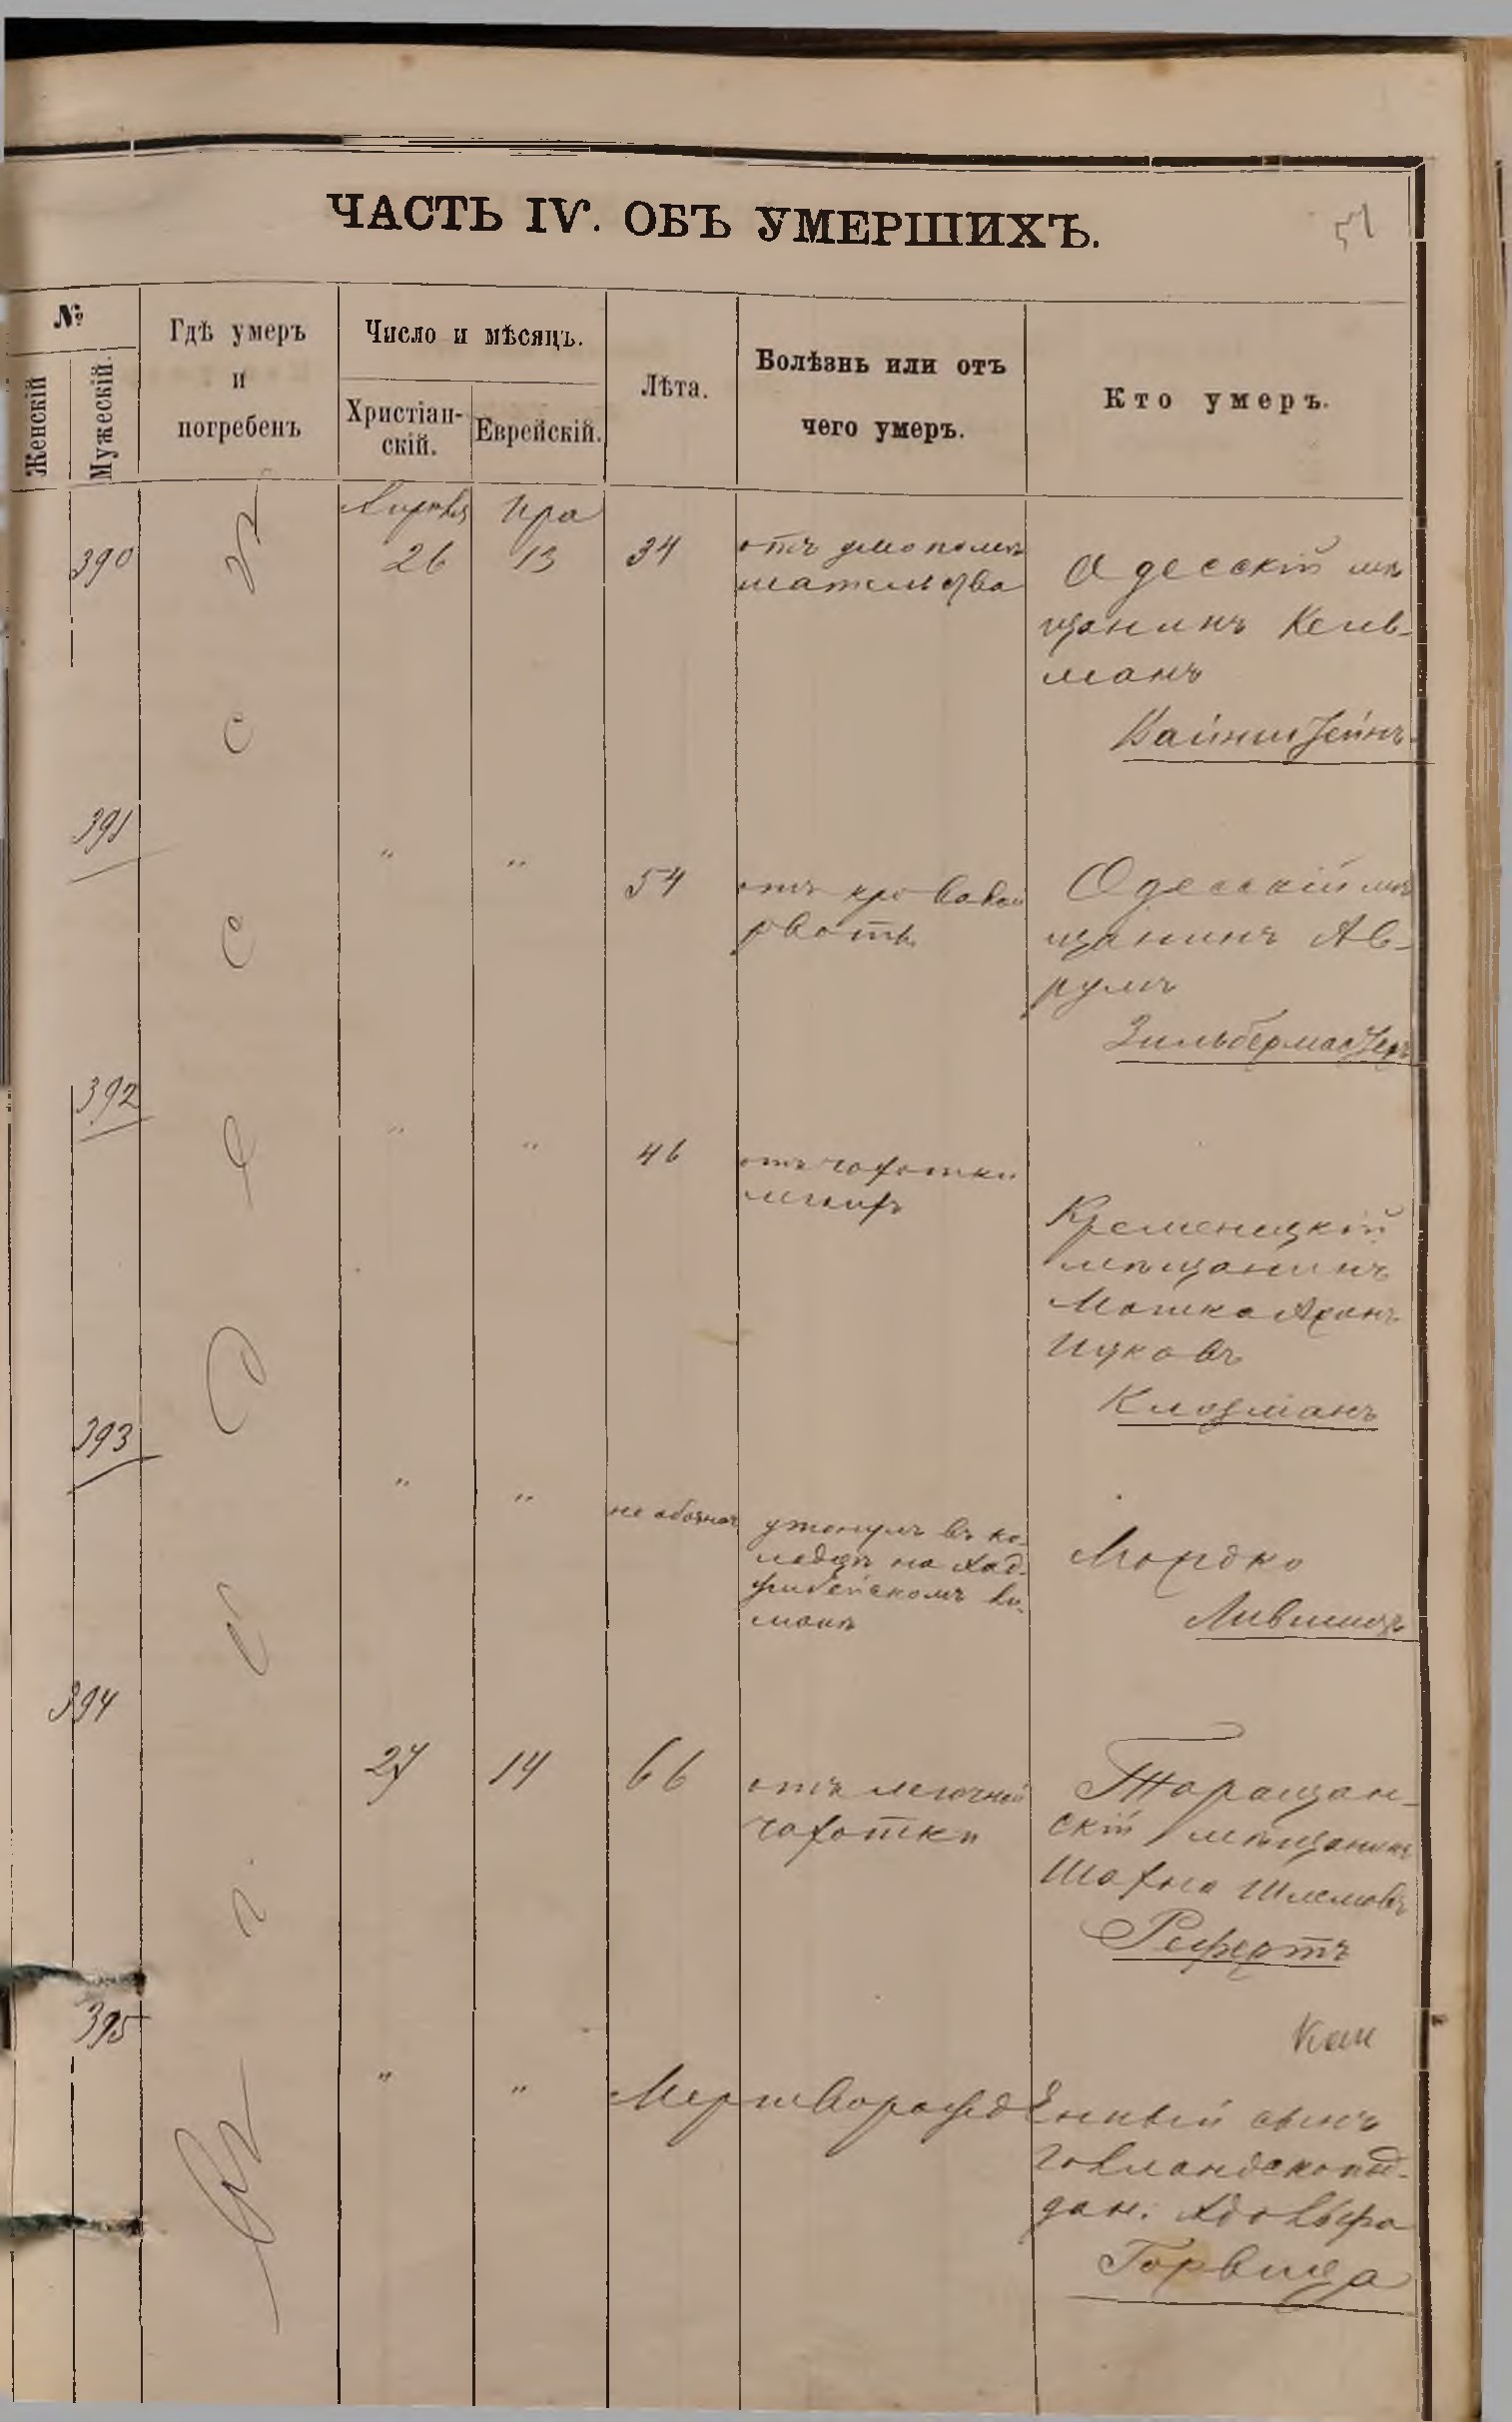 ЧАСТЬ IV. ОБЪ УМЕРШИХЪ.
51
№
Женскій
Мужескій.
Гдѣ умеръ
и
погребенъ
Число и мѣсяцъ.
Христіан-
скій.
Еврейскій.
Лѣта.
Болѣзнь или отъ
чего умеръ.
Кто умеръ.
Апрѣля
Ира
390
26
13
34
отъ умопомѣ
шательства
Одесскій мѣ
щанинъ Кель-
манъ
Вайнштейнъ
391
"
"
54
отъ кровавой
рвоты
Одесскій мѣ
щанинъ Ав-
румъ
Зильбермастеръ
392
"
"
46
отъ чахотки
легкихъ
Кременецкій
мѣщанинъ
Мошко Аронъ
Ицковъ
Клозманъ
393
"
"
не обознач
утонулъ въ ко-
лодцѣ на Хад-
жибейскомъ ли-
манѣ
Мордко
Лившицъ
394
27
14
66
отъ легочной
чахотки
Таращан-
скій мѣщанинъ
Шахна Шлемовъ
Рефертъ
395
"
"
Мертворожденный сынъ
Голландск под-
дан. Адольфа
Горвица
Въ г. Одессѣ